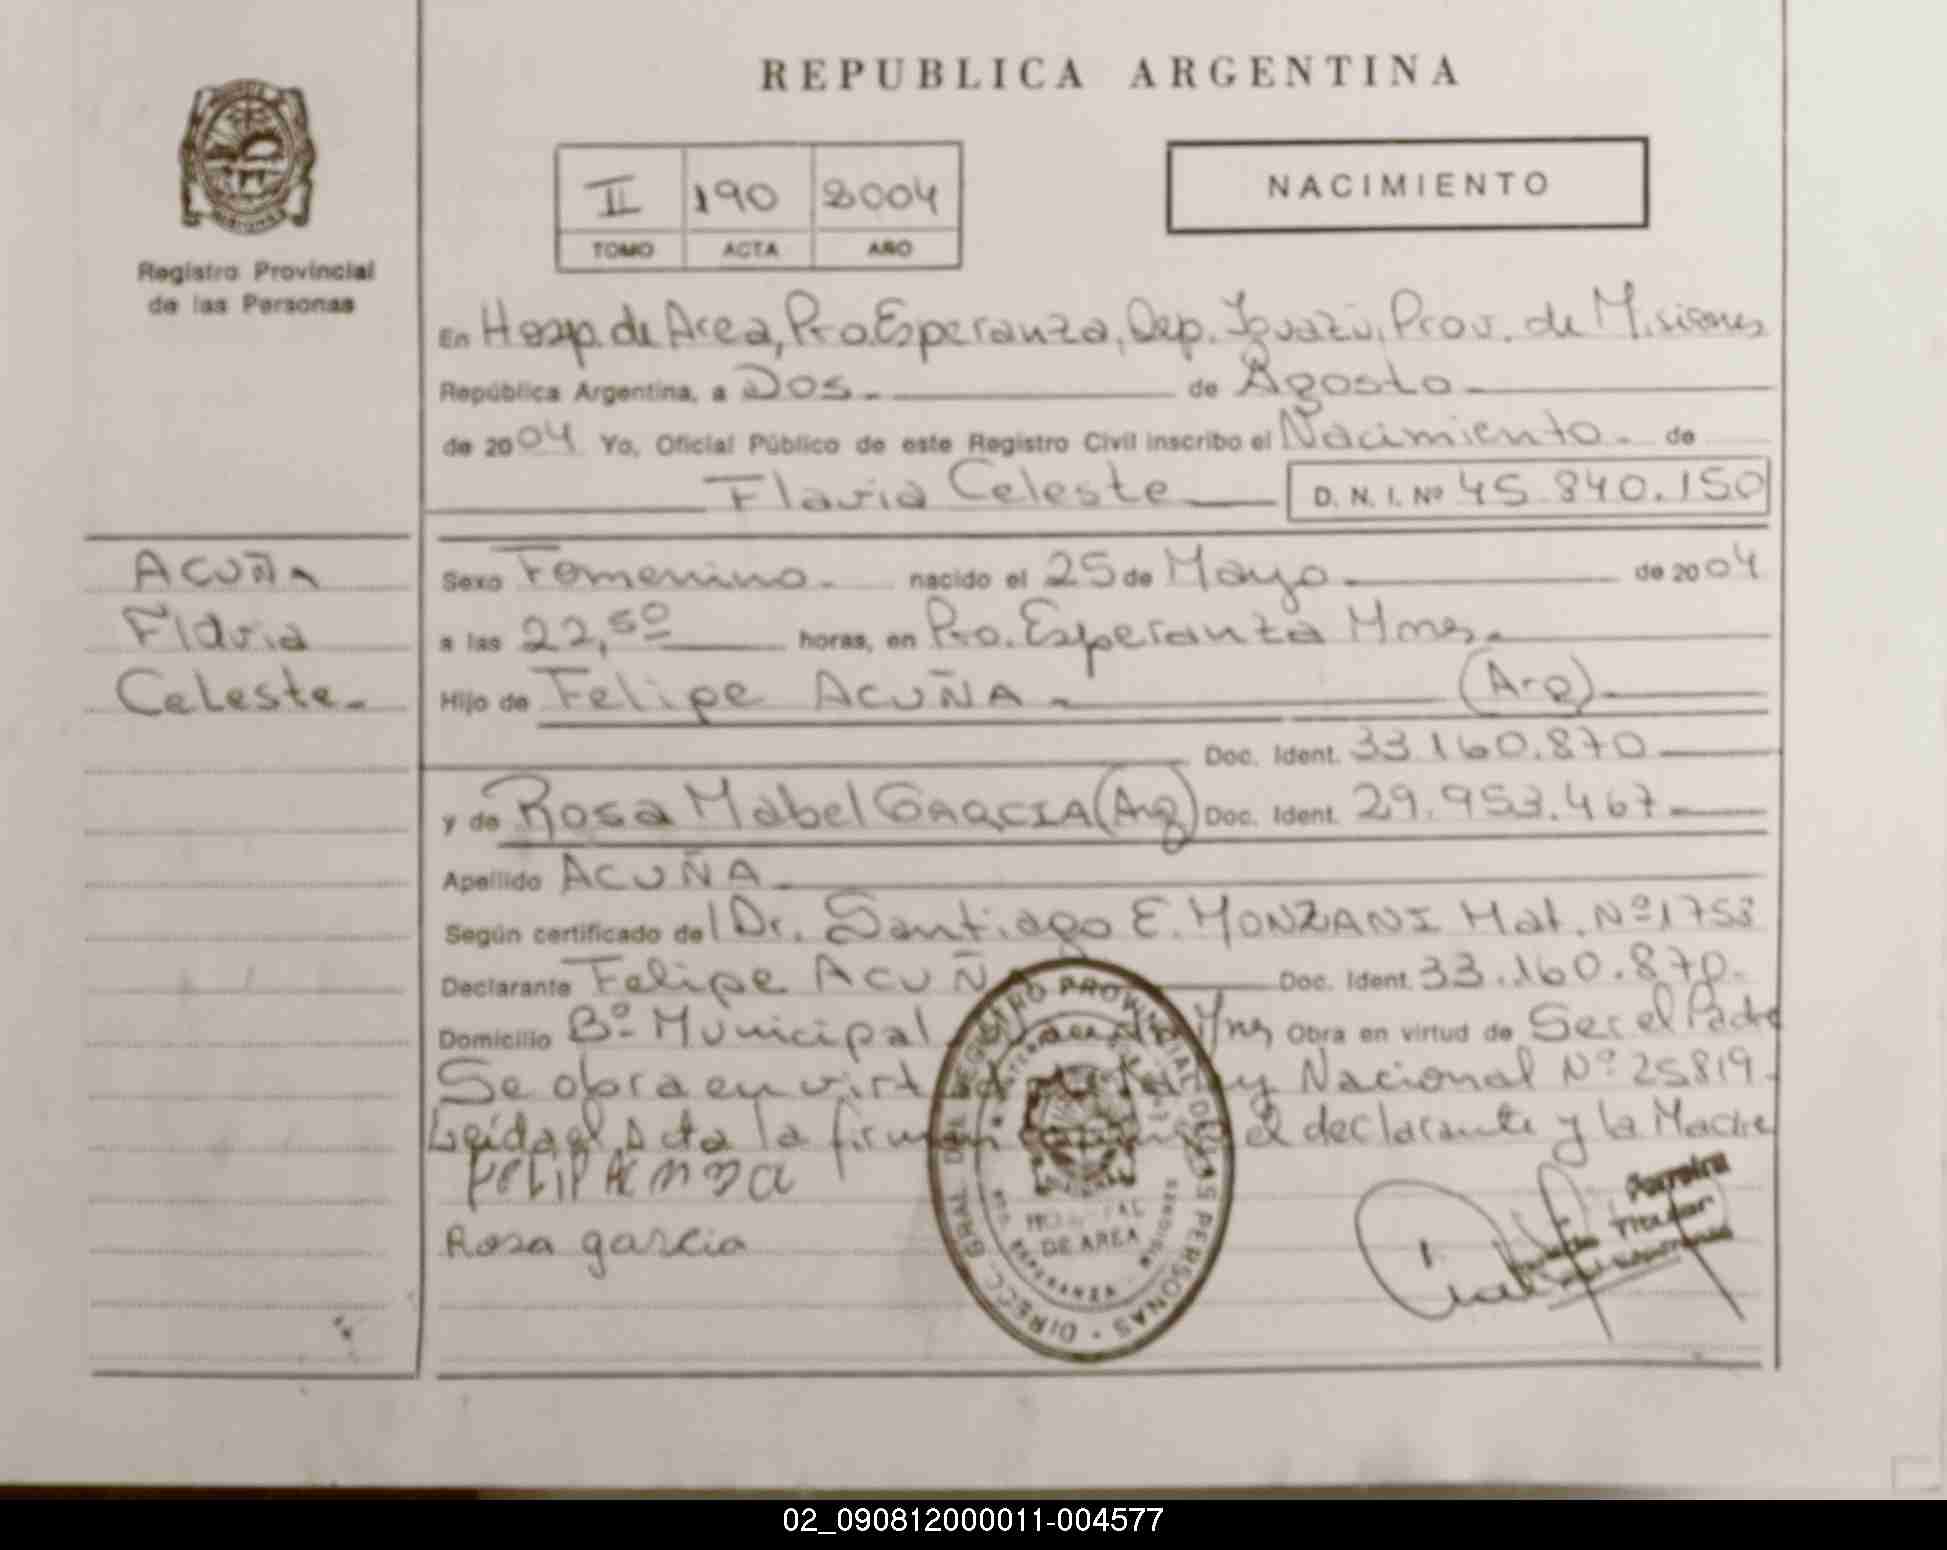 REPUBLICA ARGENTINA
II 190 2004
TOMO ACTA AÑO
NACIMIENTO
Registro Provincial
de las Personas
En Hosp. de Area, Pto. Esperanza, Dep. Iguazú, Prov. de Misiones
República Argentina, a Dos.- de Agosto
de 2004 Yo, Oficial Público de este Registro Civil inscribo el Nacimiento.- de
Flavia Celeste D. N. I. Nº 45.840.150
ACUÑA
Flavia
Celeste.-
Sexo Femenino.- nacido el 25 de Mayo.- de 2004
a las 22,50 horas, en Pto. Esperanza Mnes.-
Hijo de Felipe ACUÑA.- (Arg).-
Doc. Ident. 33.160.870
y de Rosa Mabel GARCIA (Arg) Doc. Ident. 29.953.467.-
Apellido ACUÑA.-
Según certificado del Dr. Santiago E. MONZANI Mat. Nº 1753
Declarante Felipe ACUÑA Doc. Ident. 33.160.870.-
Domicilio Bº Municipal Mnes Obra en virtud de Ser el Padre
Se obra en virtud Ley Nacional Nº 25819.-
Leída el Acta la firman el declarante y la Madre
Rosa garcia
DIRECC. GRAL. DEL REGISTRO PROVINCIAL DE LAS PERSONAS
HOSPITAL
DE AREA
PTO. ESPERANZA - MISIONES
Titular
02_090812000011-004577